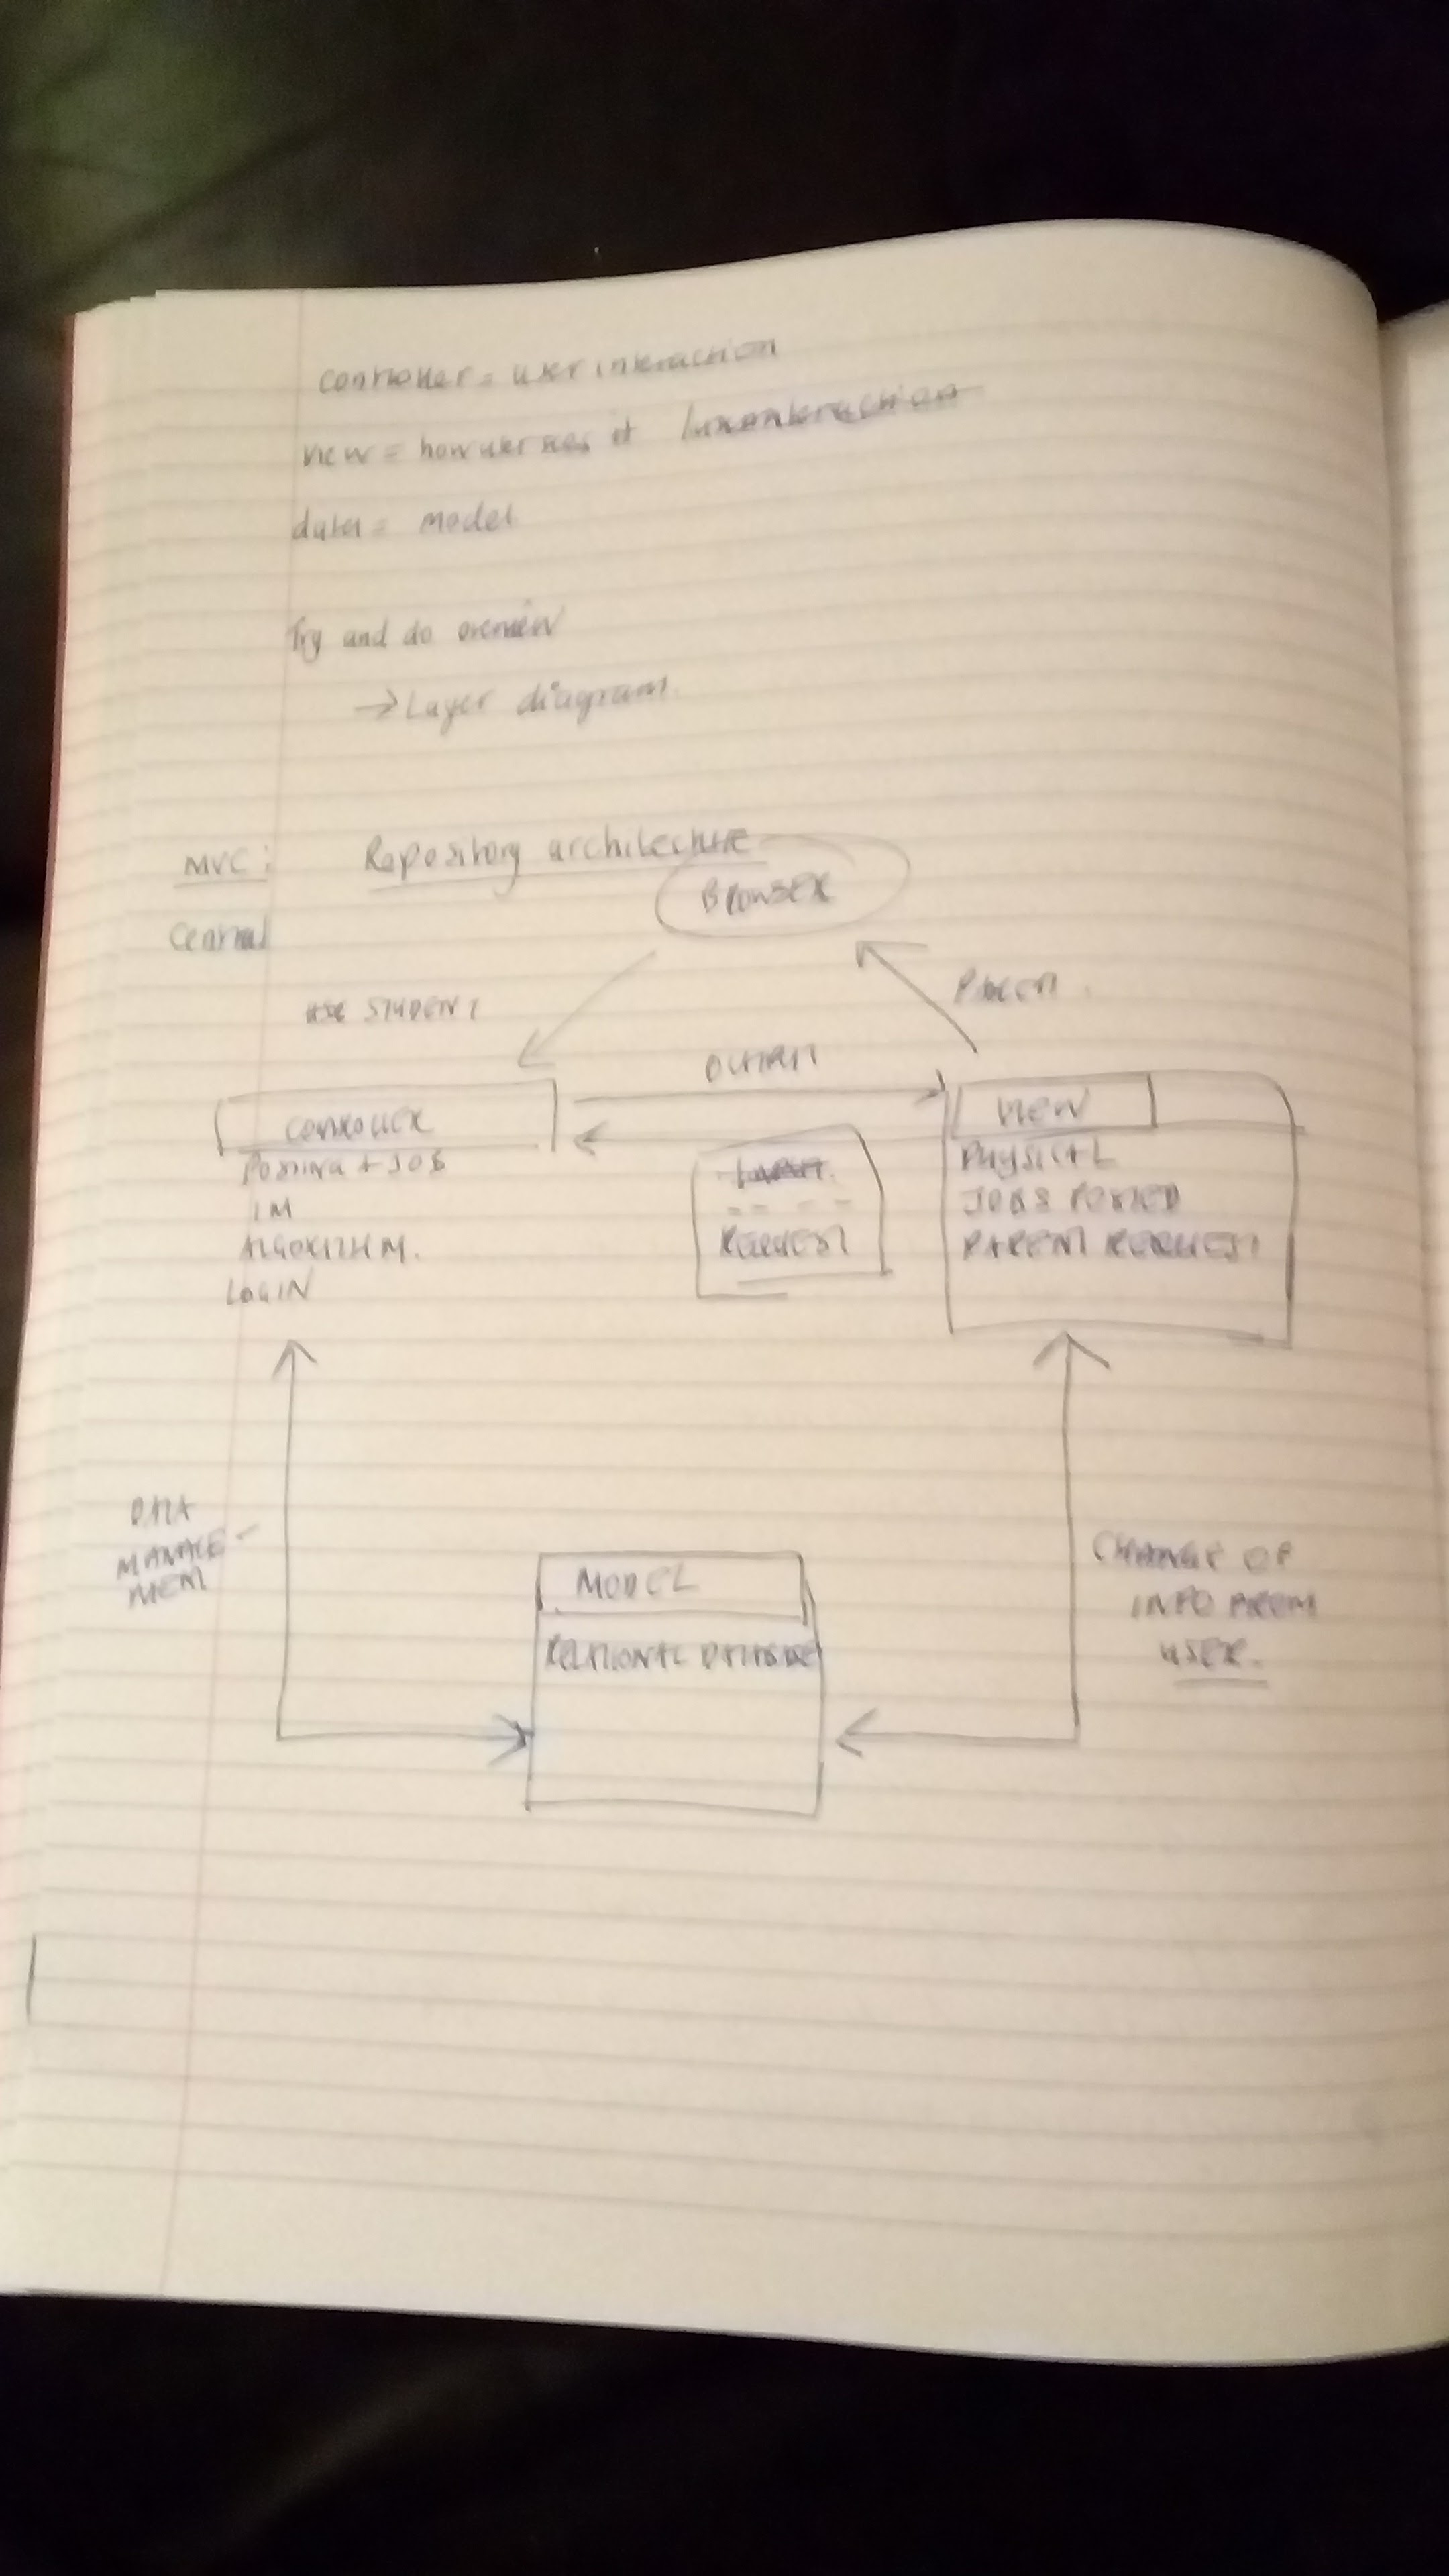 controller = user interaction
view = how user sees it
data = model
Try and do overview
→ Layer diagram.
MVC:
Repository architecture
BROWSER
Central
HSC STUDENT
PARENT
OUTPUT
CONTROLLER
VIEW
POSTING A JOB
IM
ALGORITHM.
LOGIN
INPUT
REQUEST
PHYSICAL
JOBS POSTED
PARENT REQUEST
DATA
MANAGE-
MENT
MODEL
RELATIONAL DATABASE
CHANGE OF
INFO FROM
USER.